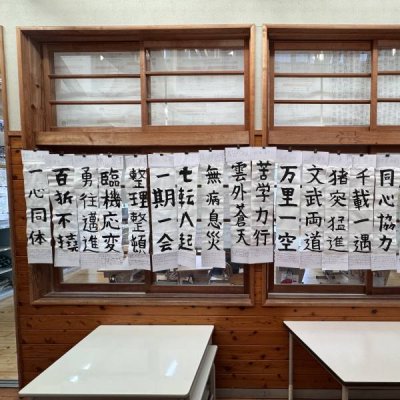 同心協力
千載一遇
猪突猛進
文武両道
万里一空
苦学力行
雲外蒼天
無病息災
七転八起
一期一会
整理整頓
臨機応変
勇往邁進
百折不撓
一心同体